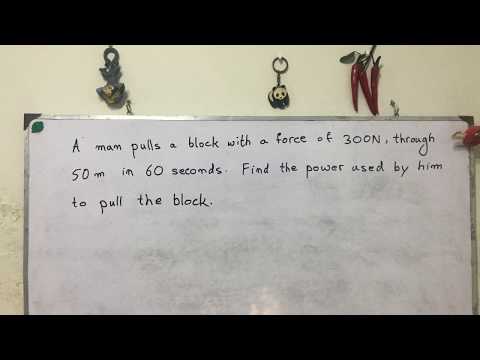 A man pulls a block with a force of 300N, through
50m in 60 seconds. Find the power used by him
to pull the block.